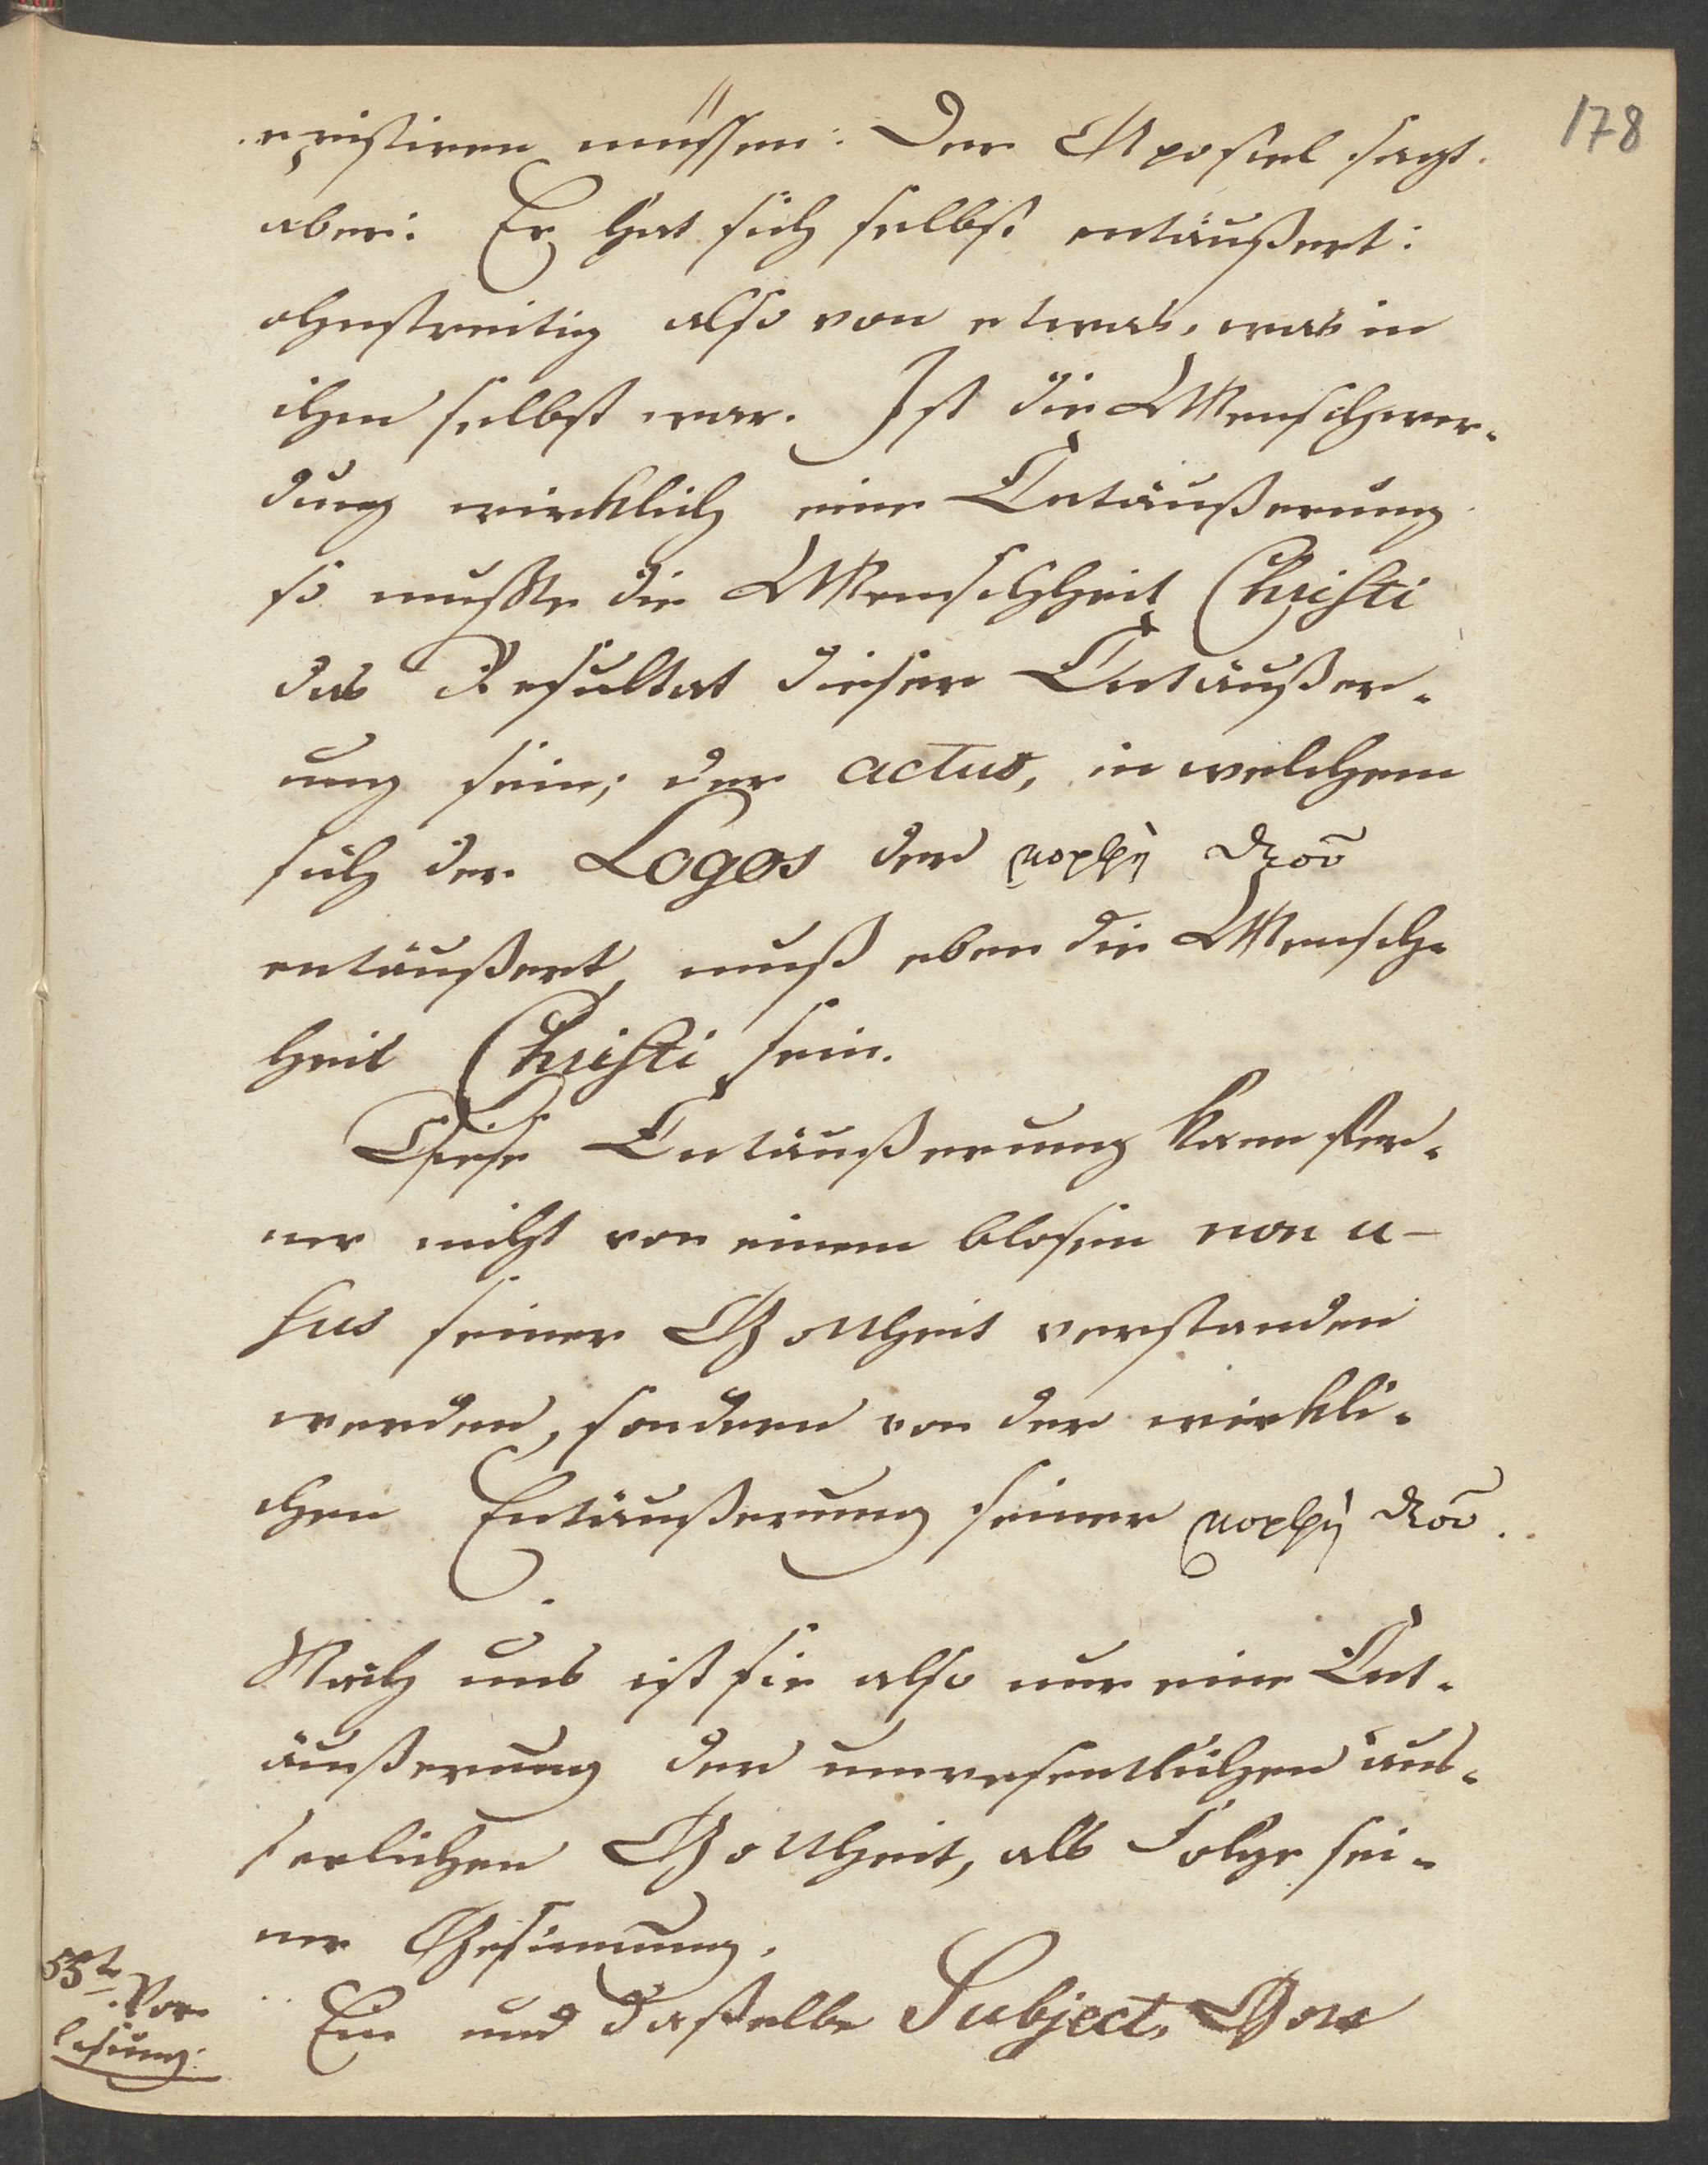 178
existiren müssen: Der Apostel sagt
aber: Er hat sich selbst entäußert:
ohnstreitig also von etwas, was in
ihm selbst war. Ist die Menschwer-
dung wirklich eine Entäußerung
so mußte die Menschheit Christi
das Resultat dieser Entäußer-
ung sein; der actus, in welchem
sich der Logos der μορφὴ θεοῦ
entäußert, muß eben die Mensch-
heit Christi sein.
Diese Entäußerung kann fer-
ner nicht von einem blosen non u-
sus seiner Gottheit verstanden
werden, sondern von der wirkli-
chen Entäußerung seiner μορφὴ θεοῦ.
Nach uns ist sie also nur eine Ent-
äußerung der unwesentlichen äus-
serlichen Gottheit, als Folge sei-
ner Gesinnung.
55t
Vor
lesung:
Ein und daßelbe Subject, Gott